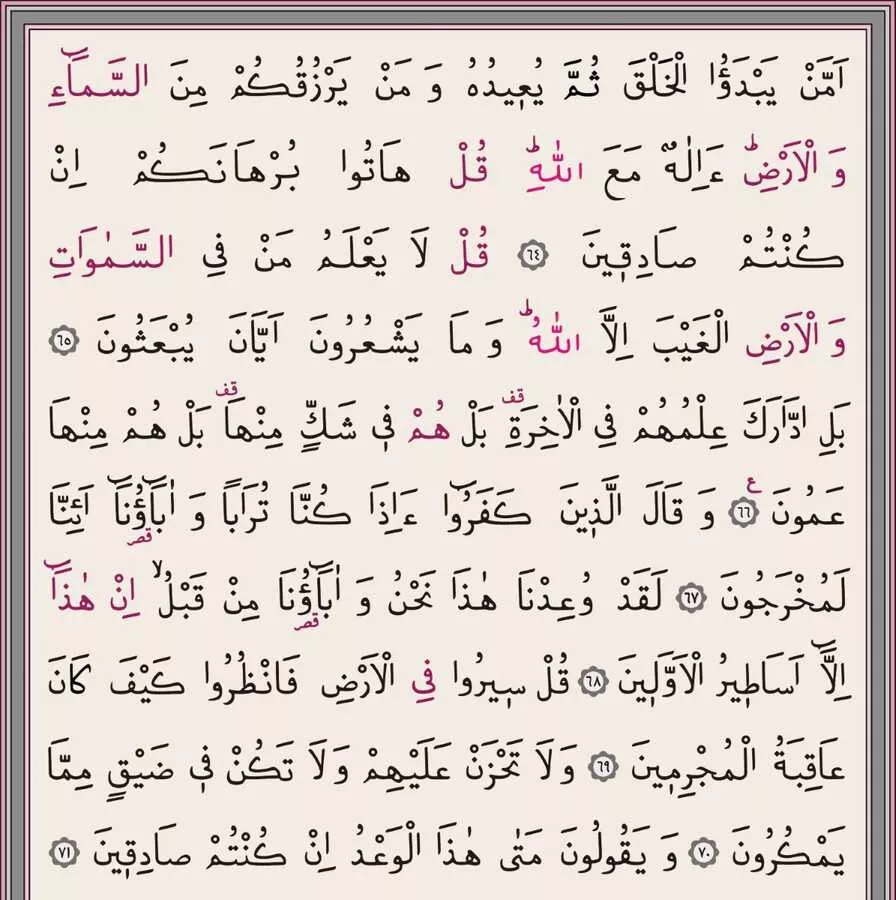 اَمَّنْ يَبْدَؤُا الْخَلْقَ ثُمَّ يُعٖيدُهُ وَ مَنْ يَرْزُقُكُمْ مِنَ السَّمَٓاءِ
وَ الْاَرْضِؕ ءَاِلٰهٌ مَعَ اللّٰهِؕ قُلْ هَاتُوا بُرْهَانَكُمْ اِنْ
كُنْتُمْ صَادِقٖينَ ﴿٦٤﴾ قُلْ لَا يَعْلَمُ مَنْ فِي السَّمٰوَاتِ
وَ الْاَرْضِ الْغَيْبَ اِلَّا اللّٰهُؕ وَ مَا يَشْعُرُونَ اَيَّانَ يُبْعَثُونَ ﴿٦٥﴾
بَلِ ادَّارَكَ عِلْمُهُمْ فِي الْاٰخِرَةِࣞ قف بَلْ هُمْ فٖي شَكٍّ مِنْهَا قف بَلْ هُمْ مِنْهَا
عَمُونَ ﴿٦٦﴾ ع وَ قَالَ الَّذٖينَ كَفَرُٓوا ءَاِذَا كُنَّا تُرَاباً وَ اٰبَٓاؤُنَٓا قصر اَئِنَّا
لَمُخْرَجُونَ ﴿٦٧﴾ لَقَدْ وُعِدْنَا هٰذَا نَحْنُ وَ اٰبَٓاؤُنَا قصر مِنْ قَبْلُۙ اِنْ هٰذَٓا
اِلَّٓا اَسَاطٖيرُ الْاَوَّلٖينَ ﴿٦٨﴾ قُلْ سٖيرُوا فِي الْاَرْضِ فَانْظُرُوا كَيْفَ كَانَ
عَاقِبَةُ الْمُجْرِمٖينَ ﴿٦٩﴾ وَلَا تَحْزَنْ عَلَيْهِمْ وَلَا تَكُنْ فٖي ضَيْقٍ مِمَّا
يَمْكُرُونَ ﴿٧٠﴾ وَ يَقُولُونَ مَتٰى هٰذَا الْوَعْدُ اِنْ كُنْتُمْ صَادِقٖينَ ﴿٧١﴾